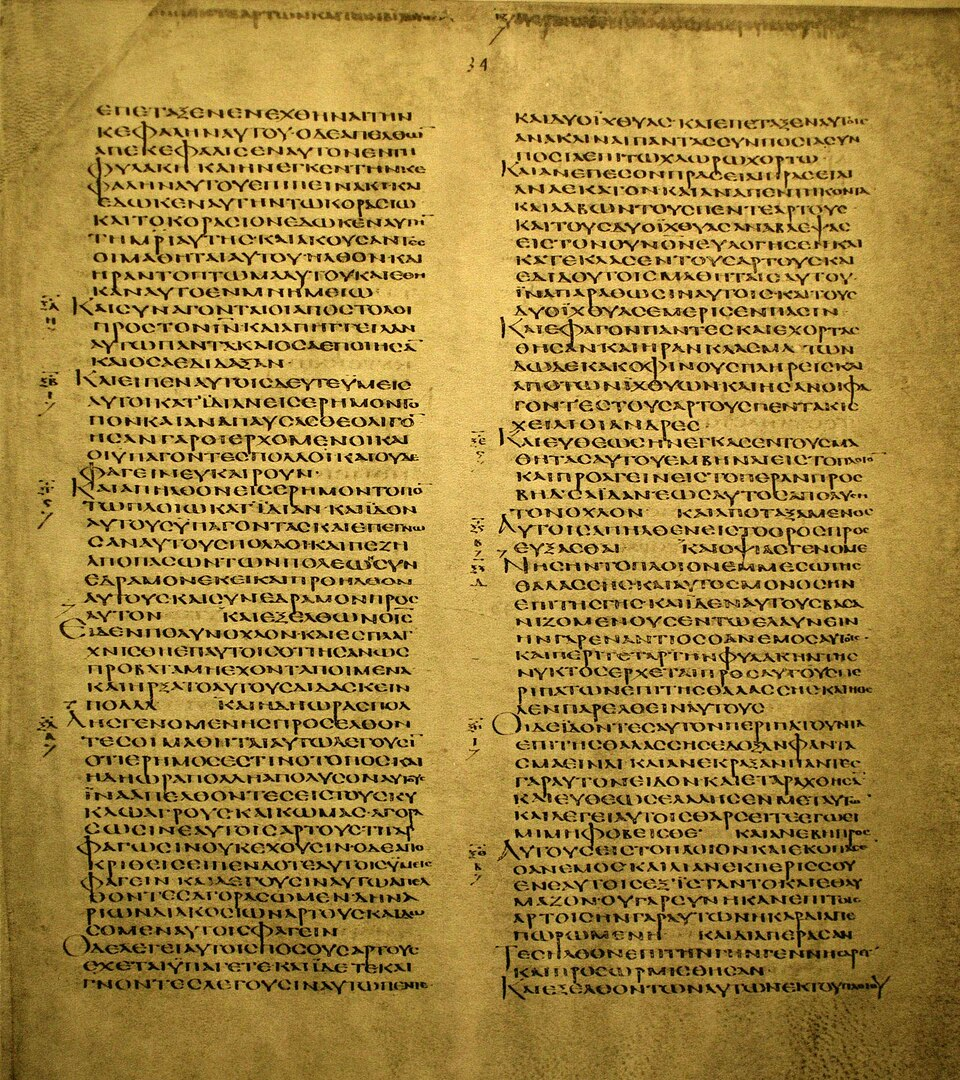 34
ΕΠΕΤΑΞΕΝΕΝΕΧΘΗΝΑΙΤΗΝ
ΚΕΦΑΛΗΝΑΥΤΟΥ·ΟΔΕΑΠΕΛΘΩ̅
ΑΠΕΚΕΦΑΛΙϹΕΝΑΥΤΟΝΕΝΤΗ
ΦΥΛΑΚΗ ΚΑΙΗΝΕΓΚΕΝΤΗΝΚΕ
ΦΑΛΗΝΑΥΤΟΥΕΠΙΠΕΙΝΑΚΙΚΑΙ
ΕΔΩΚΕΝΑΥΤΗΝΤΩΚΟΡΑϹΙΩ
ΚΑΙΤΟΚΟΡΑϹΙΟΝΕΔΩΚΕΝΑΥΤΗ̅
ΤΗΜ̅Ρ̅Ι̅ΑΥΤΗϹΚΑΙΑΚΟΥϹΑΝΤΕϹ
ΟΙΜΑΘΗΤΑΙΑΥΤΟΥΗΛΘΟΝΚΑΙ
ΗΡΑΝΤΟΠΤΩΜΑΑΥΤΟΥΚΑΙΕΘΗ
ΚΑΝΑΥΤΟΕΝΜΝΗΜΕΙΩ
ΚΑΙϹΥΝΑΓΟΝΤΑΙΟΙΑΠΟϹΤΟΛΟΙ
ΠΡΟϹΤΟΝΙ̅Ν̅ΚΑΙΑΠΗΓΓΕΙΛΑΝ
ΑΥΤΩΠΑΝΤΑΚΑΙΟϹΑΕΠΟΙΗϹΑ̅
ΚΑΙΟϹΑΕΔΙΔΑΞΑΝ
ΚΑΙΕΙΠΕΝΑΥΤΟΙϹΔΕΥΤΕΥΜΕΙϹ
ΑΥΤΟΙΚΑΤΪΔΙΑΝΕΙϹΕΡΗΜΟΝΤΟ
ΠΟΝΚΑΙΑΝΑΠΑΥϹΑϹΘΕΟΛΙΓΟ̅
ΗϹΑΝΓΑΡΟΙΕΡΧΟΜΕΝΟΙΚΑΙ
ΟΙΥΠΑΓΟΝΤΕϹΠΟΛΛΟΙΚΑΙΟΥΔΕ
ΦΑΓΕΙΝΕΥΚΑΙΡΟΥΝ·
ΚΑΙΑΠΗΛΘΟΝΕΙϹΕΡΗΜΟΝΤΟΠΟ̅
ΤΩΠΛΟΙΩΚΑΤΪΔΙΑΝ ΚΑΙΪΔΟΝ
ΑΥΤΟΥϹΥΠΑΓΟΝΤΑϹΚΑΙΕΠΕΓΝΩ
ϹΑΝΑΥΤΟΥϹΠΟΛΛΟΙΚΑΙΠΕΖΗ
ΑΠΟΠΑϹΩΝΤΩΝΠΟΛΕΩ̅ϹΥΝ
ΕΔΡΑΜΟΝΕΚΕΙΚΑΙΠΡΟΗΛΘΟΝ
ΑΥΤΟΥϹΚΑΙϹΥΝΕΔΡΑΜΟΝΠΡΟϹ
ΑΥΤΟΝ ΚΑΙΕΞΕΛΘΩΝΟΙ̅Ϲ̅
ΕΙΔΕΝΠΟΛΥΝΟΧΛΟΝΚΑΙΕϹΠΛΑΓ
ΧΝΙϹΘΗΕΠΑΥΤΟΙϹΟΤΙΗϹΑΝΩϹ
ΠΡΟΒΑΤΑΜΗΕΧΟΝΤΑΠΟΙΜΕΝΑ
ΚΑΙΗΡΞΑΤΟΑΥΤΟΥϹΔΙΔΑϹΚΕΙΝ
ΠΟΛΛΑ ΚΑΙΗΔΗΩΡΑϹΠΟΛ
ΛΗϹΓΕΝΟΜΕΝΗϹΠΡΟϹΕΛΘΟΝ
ΤΕϹΟΙΜΑΘΗΤΑΙΑΥΤΩΛΕΓΟΥϹΙ̅
ΟΤΙΕΡΗΜΟϹΕϹΤΙΝΟΤΟΠΟϹΚΑΙ
ΗΔΗΩΡΑΠΟΛΛΗΑΠΟΛΥϹΟΝΑΥΤΟΥϹ
ΪΝΑΑΠΕΛΘΟΝΤΕϹΕΙϹΤΟΥϹΚΥ
ΚΛΩΑΓΡΟΥϹΚΑΙΚΩΜΑϹΑΓΟΡΑ
ϹΩϹΙΝΕΑΥΤΟΙϹΑΡΤΟΥϹ·ΤΙΓΑΡ
ΦΑΓΩϹΙΝΟΥΚΕΧΟΥϹΙΝ·ΟΔΕΑΠΟ
ΚΡΙΘΕΙϹΕΙΠΕΝΔΟΤΕΑΥΤΟΙϹΥΜΕΙϹ
ΦΑΓΕΙΝ ΚΑΙΛΕΓΟΥϹΙΝΑΥΤΩΑΠΕΛ
ΘΟΝΤΕϹΑΓΟΡΑϹΩΜΕΝΔΗΝΑ
ΡΙΩΝΔΙΑΚΟϹΙΩΝΑΡΤΟΥϹΚΑΙΔΩ
ϹΟΜΕΝΑΥΤΟΙϹΦΑΓΕΙΝ
ΟΔΕΛΕΓΕΙΑΥΤΟΙϹΠΟϹΟΥϹΑΡΤΟΥϹ
ΕΧΕΤΑΙΫΠΑΓΕΤΕΚΑΙΪΔΕΤΕΚΑΙ
ΓΝΟΝΤΕϹΛΕΓΟΥϹΙΝΑΥΤΩΠΕΝΤΕ
ΚΑΙΔΥΟΪΧΘΥΑϹ·ΚΑΙΕΠΕΤΑΞΕΝΑΥΤΟΙϹ
ΑΝΑΚΛΙΝΑΙΠΑΝΤΑϹϹΥΝΠΟϹΙΑϹΥΝ
ΠΟϹΙΑΕΠΙΤΩΧΛΩΡΩΧΟΡΤΩ
ΚΑΙΑΝΕΠΕϹΟΝΠΡΑϹΕΙΑΙΠΡΑϹΕΙΑΙ
ΑΝΑΕΚΑΤΟΝΚΑΙΑΝΑΠΕΝΤΗΚΟΝΤΑ
ΚΑΙΛΑΒΩΝΤΟΥϹΠΕΝΤΕΑΡΤΟΥϹ
ΚΑΙΤΟΥϹΔΥΟΪΧΘΥΑϹΑΝΑΒΛΕΨΑϹ
ΕΙϹΤΟΝΟΥΝΟΝΕΥΛΟΓΗϹΕΝΚΑΙ
ΚΑΤΕΚΛΑϹΕΝΤΟΥϹΑΡΤΟΥϹΚΑΙ
ΕΔΙΔΟΥΤΟΙϹΜΑΘΗΤΑΙϹΑΥΤΟΥ·
ΪΝΑΠΑΡΑΘΩϹΙΝΑΥΤΟΙϹΚΑΙΤΟΥϹ
ΔΥΟΪΧΘΥΑϹΕΜΕΡΙϹΕΝΠΑϹΙΝ
ΚΑΙΕΦΑΓΟΝΠΑΝΤΕϹΚΑΙΕΧΟΡΤΑϹ
ΘΗϹΑΝΚΑΙΗΡΑΝΚΛΑϹΜΑΤΩΝ
ΔΩΔΕΚΑΚΟΦΙΝΟΥϹΠΛΗΡΕΙϹΚΑΙ
ΑΠΟΤΩΝΪΧΘΥΩΝΚΑΙΗϹΑΝΟΙΦΑ
ΓΟΝΤΕϹΤΟΥϹΑΡΤΟΥϹΠΕΝΤΑΚΙϹ
ΧΕΙΛΙΟΙΑΝΔΡΕϹ
ΚΑΙΕΥΘΕΩϹΗΝΕΓΚΑϹΕΝΤΟΥϹΜΑ
ΘΗΤΑϹΑΥΤΟΥΕΜΒΗΝΑΙΕΙϹΤΟΠΛΟΙΟ̅
ΚΑΙΠΡΟΑΓΕΙΝΕΙϹΤΟΠΕΡΑΝΠΡΟϹ
ΒΗΔϹΑΪΔΑΝ·ΕΩϹΑΥΤΟϹΑΠΟΛΥϹΗ
ΤΟΝΟΧΛΟΝ ΚΑΙΑΠΟΤΑΞΑΜΕΝΟϹ
ΑΥΤΟΙϹΑΠΗΛΘΕΝΕΙϹΤΟΟΡΟϹΠΡΟϹ
ΕΥΞΑϹΘΑΙ ΚΑΙΟΨΙΑϹΓΕΝΟΜΕ
ΝΗϹΗΝΤΟΠΛΟΙΟΝΕΜΜΕϹΩΤΗϹ
ΘΑΛΑϹϹΗϹΚΑΙΑΥΤΟϹΜΟΝΟϹΗΝ
ΕΠΙΤΗϹΓΗϹ·ΚΑΙΪΔΕΝΑΥΤΟΥϹΒΑϹΑ
ΝΙΖΟΜΕΝΟΥϹΕΝΤΩΕΛΑΥΝΕΙΝ
ΗΝΓΑΡΕΝΑΝΤΙΟϹΟΑΝΕΜΟϹΑΥΤΟΙϹ·
ΚΑΙΠΕΡΙΤΕΤΑΡΤΗΝΦΥΛΑΚΗΝΤΗϹ
ΝΥΚΤΟϹΕΡΧΕΤΑΙΠΡΟϹΑΥΤΟΥϹΠΕ
ΡΙΠΑΤΩΝΕΠΙΤΗϹΘΑΛΑϹϹΗϹ·ΚΑΙΗΘΕ
ΛΕΝΠΑΡΕΛΘΕΙΝΑΥΤΟΥϹ
ΟΙΔΕΪΔΟΝΤΕϹΑΥΤΟΝΠΕΡΙΠΑΤΟΥΝΤΑ
ΕΠΙΤΗϹΘΑΛΑϹϹΗϹΕΔΟΞΑΝΦΑΝΤΑ
ϹΜΑΕΙΝΑΙΚΑΙΑΝΕΚΡΑΞΑΝΠΑΝΤΕϹ
ΓΑΡΑΥΤΟΝΕΙΔΟΝΚΑΙΕΤΑΡΑΧΘΗϹΑ̅
ΚΑΙΕΥΘΕΩϹΕΛΑΛΗϹΕΝΜΕΤΑΥΤΩ̅
ΚΑΙΛΕΓΕΙΑΥΤΟΙϹΘΑΡϹΕΙΤΕΕΓΩΕΙ
ΜΙΜΗΦΟΒΕΙϹΘΕ· ΚΑΙΑΝΕΒΗΠΡΟϹ
ΑΥΤΟΥϹΕΙϹΤΟΠΛΟΙΟΝΚΑΙΕΚΟΠΑϹΕ̅
ΟΑΝΕΜΟϹΚΑΙΛΙΑΝΕΚΠΕΡΙϹϹΟΥ
ΕΝΕΑΥΤΟΙϹΕΞΪϹΤΑΝΤΟΚΑΙΕΘΑΥ
ΜΑΖΟΝ·ΟΥΓΑΡϹΥΝΗΚΑΝΕΠΙΤΟΙϹ
ΑΡΤΟΙϹΗΝΓΑΡΑΥΤΩΝΗΚΑΡΔΙΑΠΕ
ΠΩΡΩΜΕΝΗ ΚΑΙΔΙΑΠΕΡΑϹΑΝ
ΤΕϹΗΛΘΟΝΕΠΙΤΗΝΓΗΝΓΕΝΝΗϹΑΡΕΤ
ΚΑΙΠΡΟϹΩΡΜΙϹΘΗϹΑΝ
ΚΑΙΕΞΕΛΘΟΝΤΩΝΑΥΤΩΝΕΚΤΟΥΠΛΟΙΟΥ